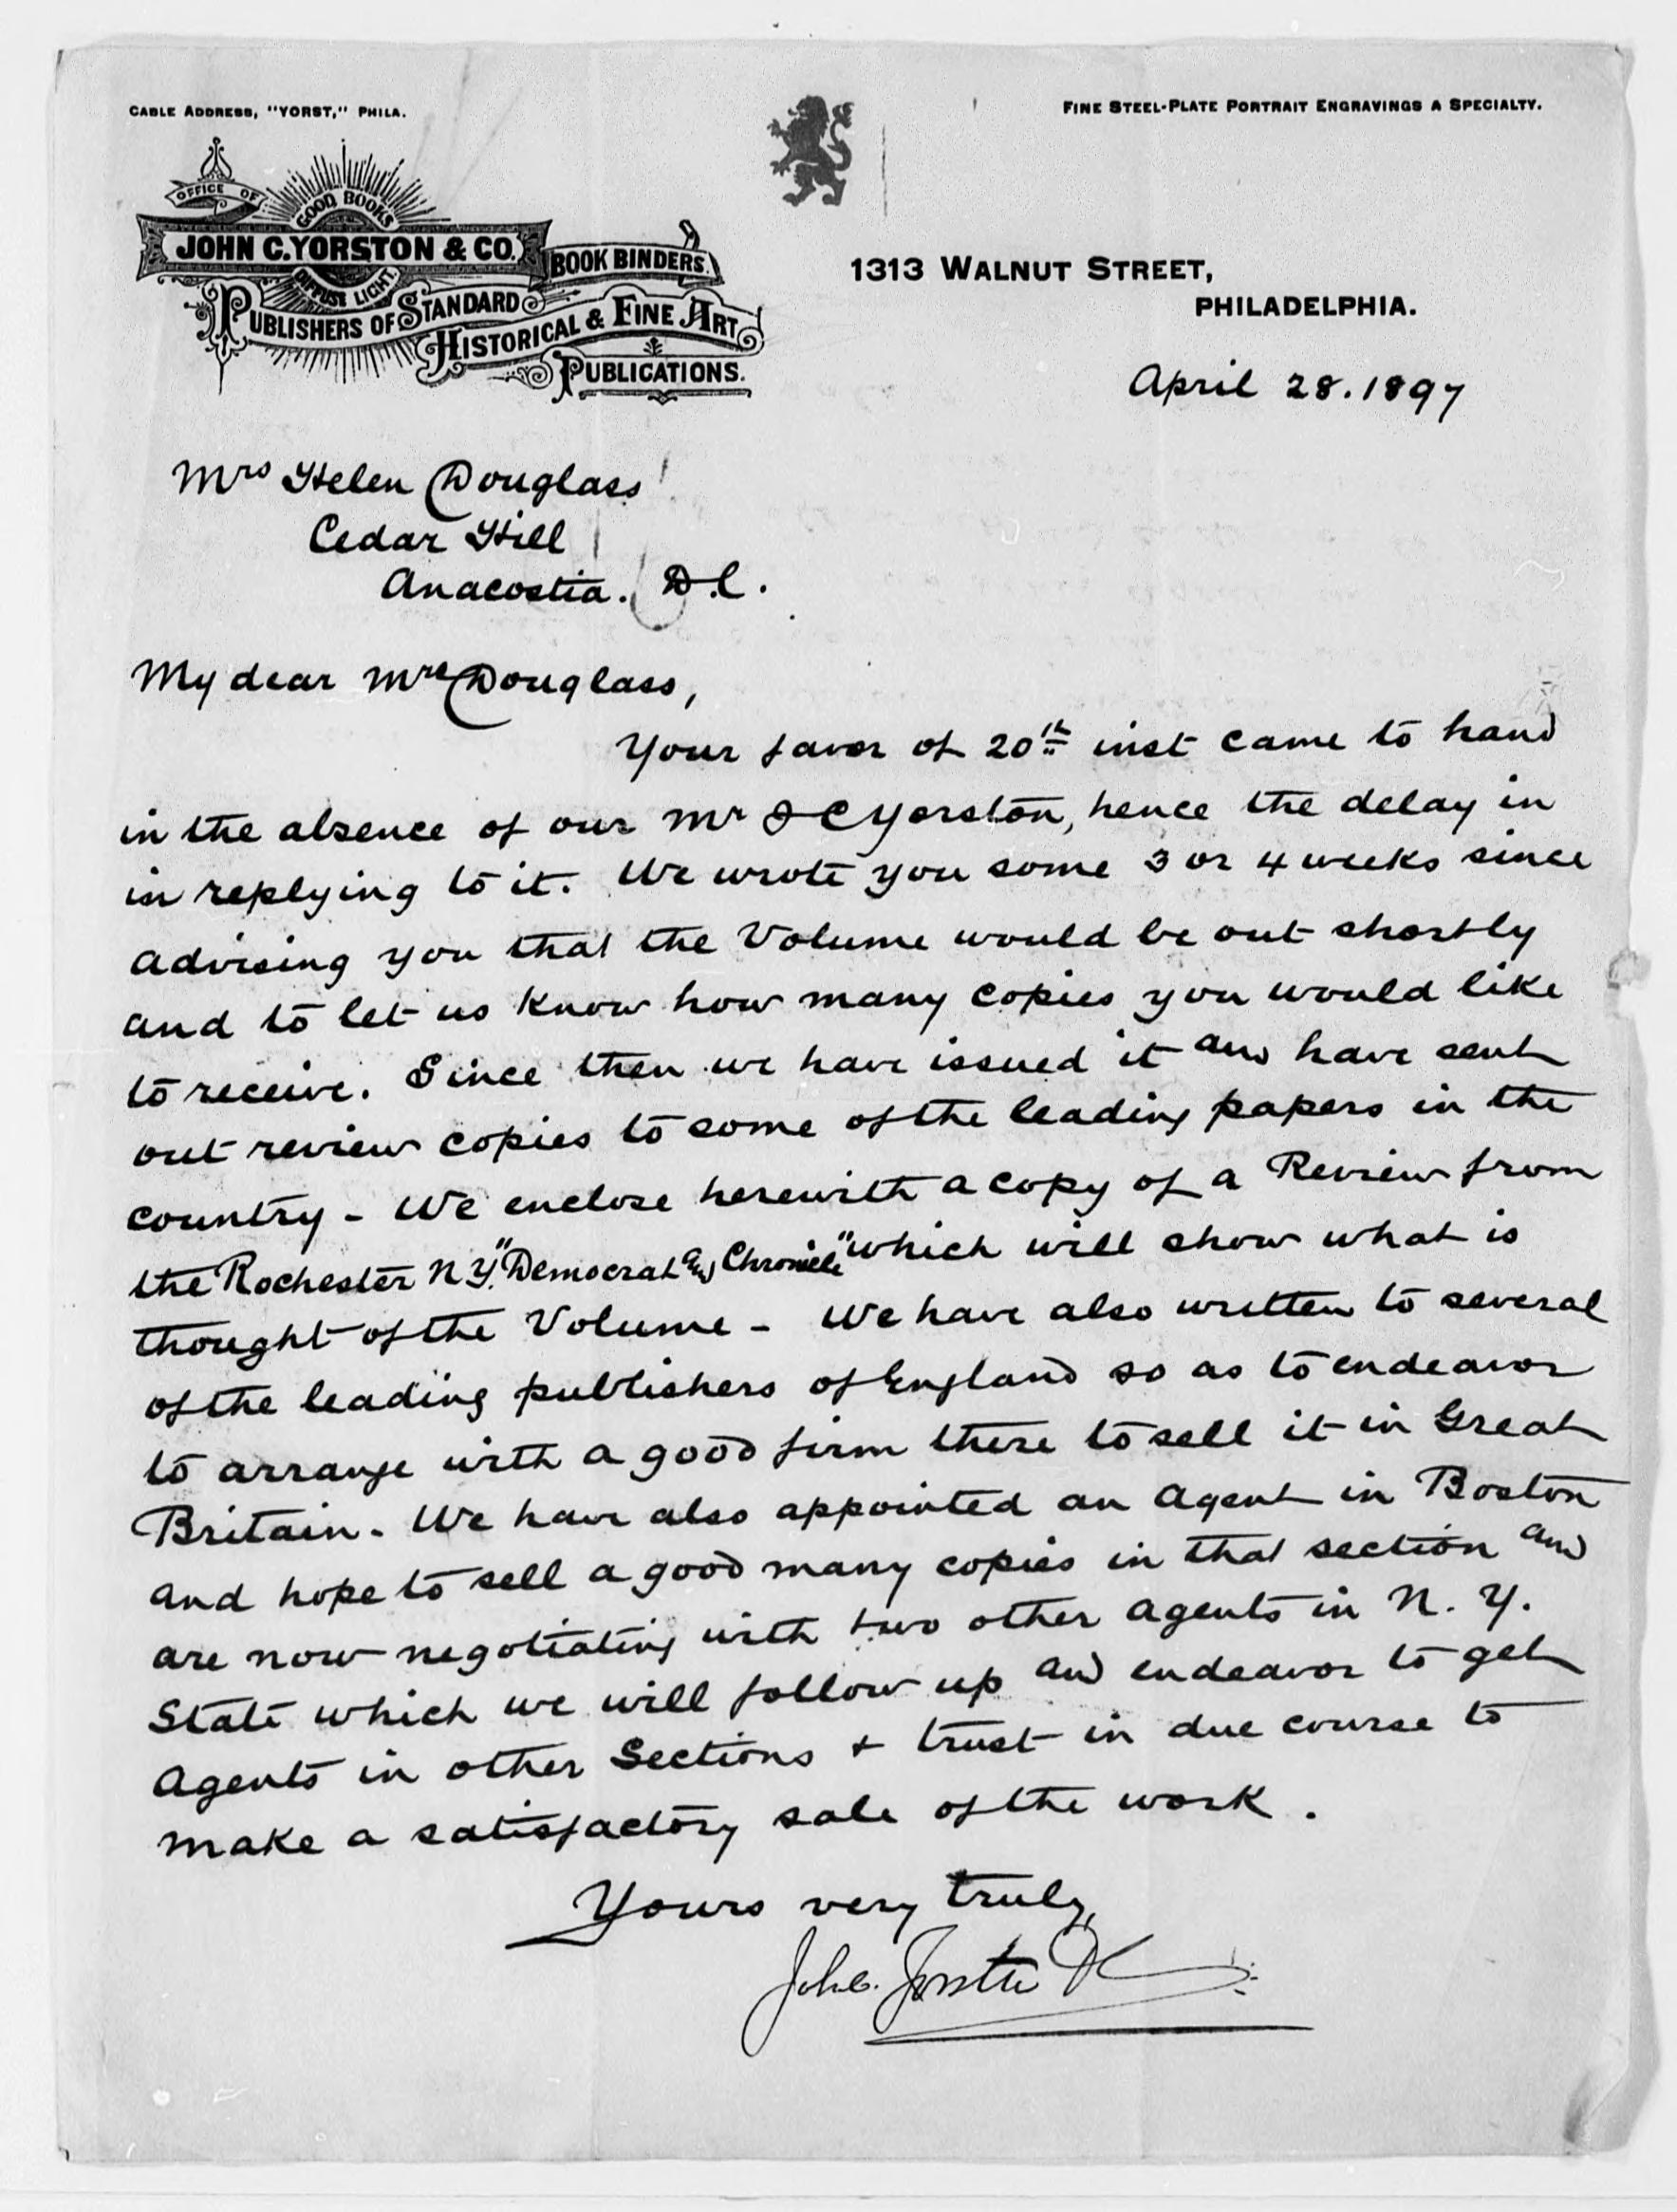 CABLE ADDRESS, "YORST," PHILA.
FINE STEEL-PLATE PORTRAIT ENGRAVINGS A SPECIALTY.
OFFICE OF
GOOD BOOKS
JOHN C. YORSTON & CO.
BOOK BINDERS.
DIFFUSE LIGHT.
PUBLISHERS OF STANDARD
HISTORICAL & FINE ART
PUBLICATIONS.
1313 WALNUT STREET,
PHILADELPHIA.
April 28. 1897
Mrs Helen Douglass
Cedar Hill
Anacostia. D.C.
My dear Mrs Douglass,
Your favor of 20th inst came to hand
in the absence of our Mr J C Yorston, hence the delay in
in replying to it. We wrote you some 3 or 4 weeks since
advising you that the Volume would be out shortly
and to let us know how many copies you would like
to receive. Since then we have issued it and have sent
out review copies to some of the leading papers in the
country - We enclose herewith a copy of a Review from
the Rochester N.Y. "Democrat and Chronicle" which will show what is
thought of the Volume - We have also written to several
of the leading publishers of England so as to endeavor
to arrange with a good firm there to sell it in Great
Britain. We have also appointed an Agent in Boston
and hope to sell a good many copies in that section and
are now negotiating with two other agents in N. Y.
State which we will follow up and endeavor to get
Agents in other Sections + trust in due course to
make a satisfactory sale of the work.
Yours very truly,
John C. Yorston & Co